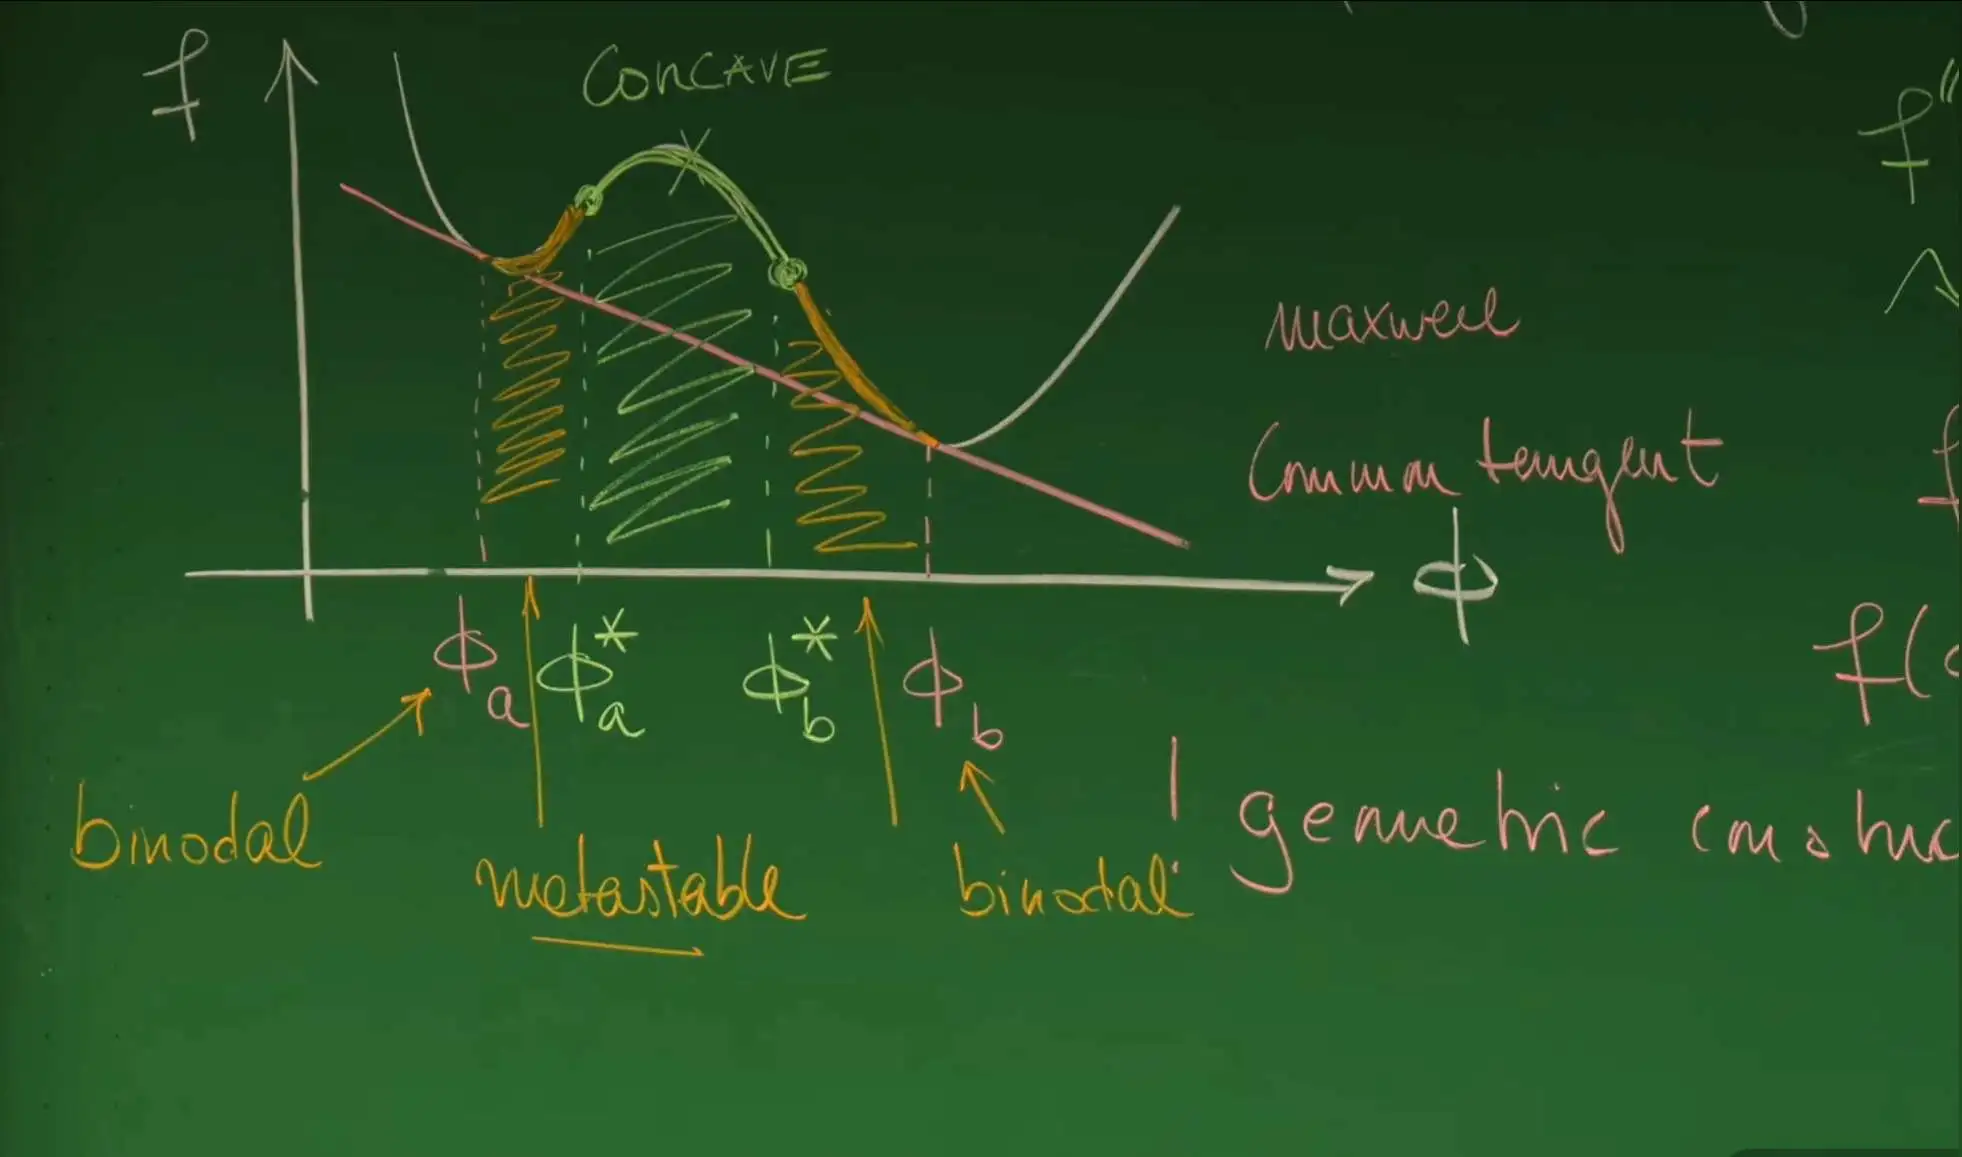 f
CONCAVE
f"
maxwell
Common tangent
f
ϕ
ϕa
ϕ*a
ϕ*b
ϕb
f(
binodal
metastable
binodal
geometric